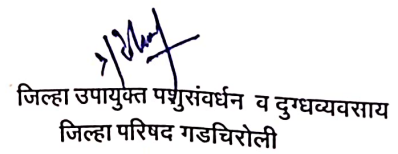 जिल्हा उपायुक्त पशुसंवर्धन व दुग्धव्यवसाय
जिल्हा परिषद गडचिरोली